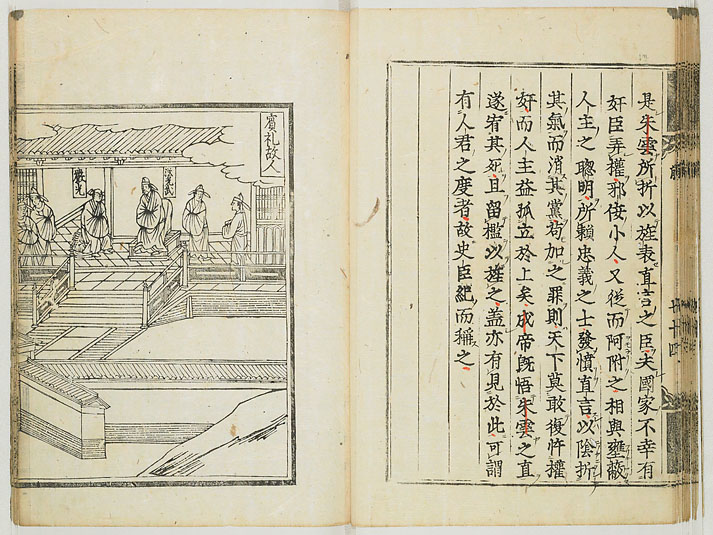 是朱雲所折以旌表直言之臣夫國家不幸有
奸臣弄權邪佞小人又從而阿附之相與壅蔽
人主之聰明所賴忠義之士發憤直言以陰折
其氣而消其黨苟加之罪則天下莫敢復忤權
奸而人主益孤立於上矣成帝既悟朱雲之直
遂宥其死且留檻以旌之盖亦有見於此可謂
有人君之度者故史臣紀而稱之
賓礼故人
嚴光